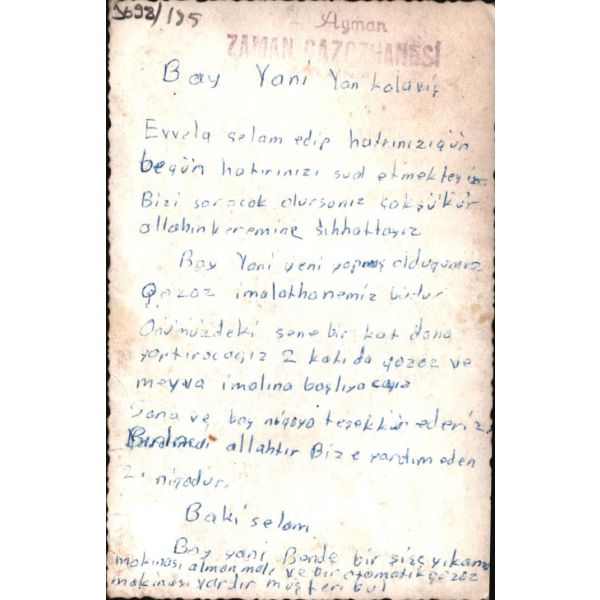 3698/195
Ayman
ZAMAN GAZOZHANESİ
Bay Yani Yankolaviç
Evvela selam edip hatırınızıgün
begün hatırınızı sual etmekteyiz
Bizi soracak olursanız çokşükür
allahınkeremine Sıhhattayız
Bay Yani yeni yapmış olduğumuz
Gazoz imalathanemiz budur
Önümüzdeki sene bir kat daha
yaptıracağız 2 katıda gazoz ve
meyva imalına başlıyacağız
Sana ve bay niqoya teşekkür ederiz.
allahtır Bize yardım eden
2. niqodur.
Baki selam
Bay yani Bende bir şişe yıkama
makinası alman malı ve bir otomatik gazoz
makinası vardır müşteri bul